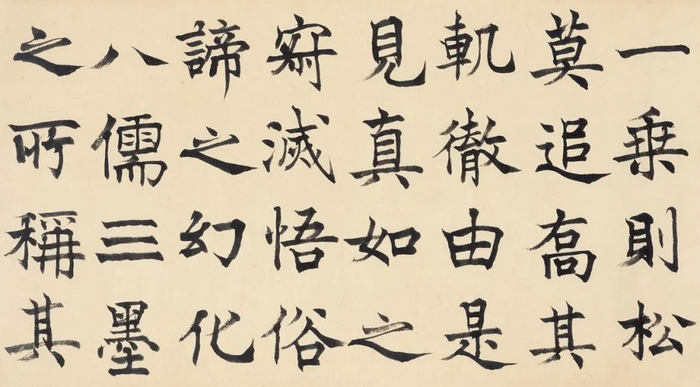 一乗則松
莫追髙其
軌徹由是
見真如之
寂滅悟俗
諦之幻化
八儒三墨
之所稱其